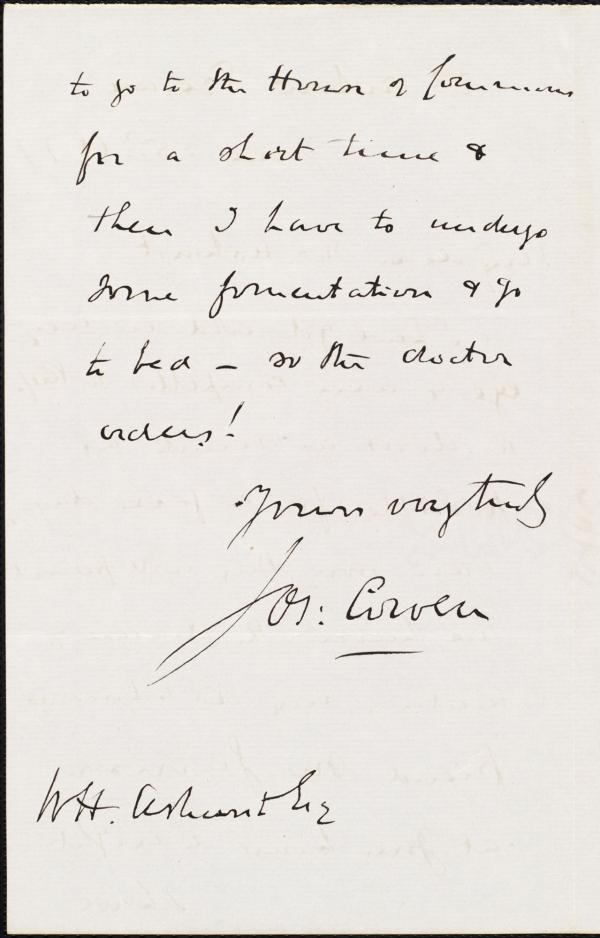 to go to the House of Commons
for a short time &
then I have to undergo
some fomentation & go
to bed — so the doctor
orders!
Yours very truly
Jos: Cowen
W H. Ashurst Esq